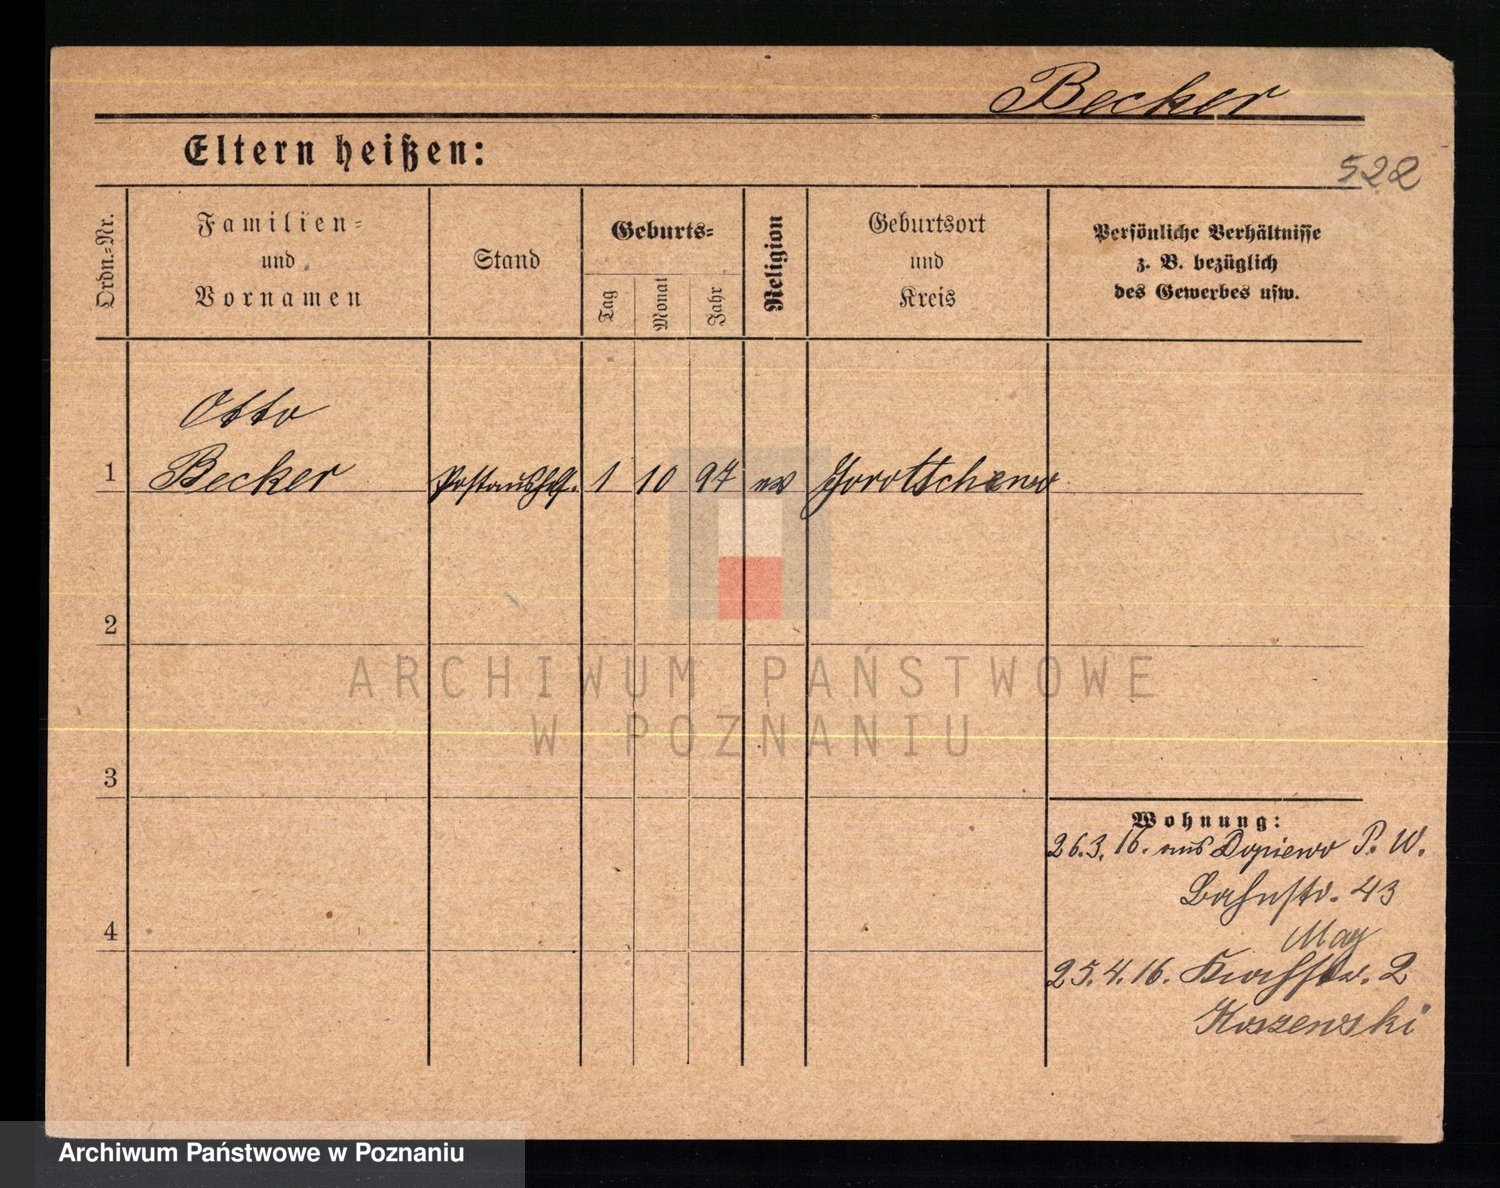 Becker
Eltern heißen:
522
Ordn.-Nr.
Familien-
und
Vornamen
Stand
Geburts-
Tag
Monat
Jahr
Religion
Geburtsort
und
Kreis
Persönliche Verhältnisse
z. B. bezüglich
des Gewerbes usw.
Otto
1 Becker Postaushlf. 1 10 97 ev
2
ARCHIWUM PAŃSTWOWE
W POZNANIU
3
Wohnung:
26.3.16. aus Dopiewo P. W.
Bahnstr. 43
May
4
25.4.16. 2
Koszewski
Archiwum Państwowe w Poznaniu